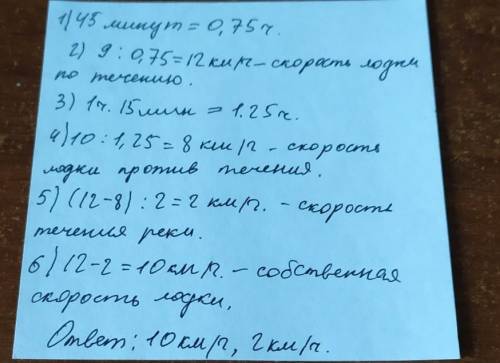 1) 45 минут = 0,75 ч.
2) 9 : 0,75 = 12 км/ч – скорость лодки
по течению.
3) 1ч. 15 мин = 1.25 ч.
4) 10 : 1,25 = 8 км/ч – скорость
лодки против течения.
5) (12-8) : 2 = 2 км/ч. – скорость
течения реки.
6) 12-2 = 10 км/ч. – собственная
скорость лодки.
Ответ: 10 км/ч, 2 км/ч.